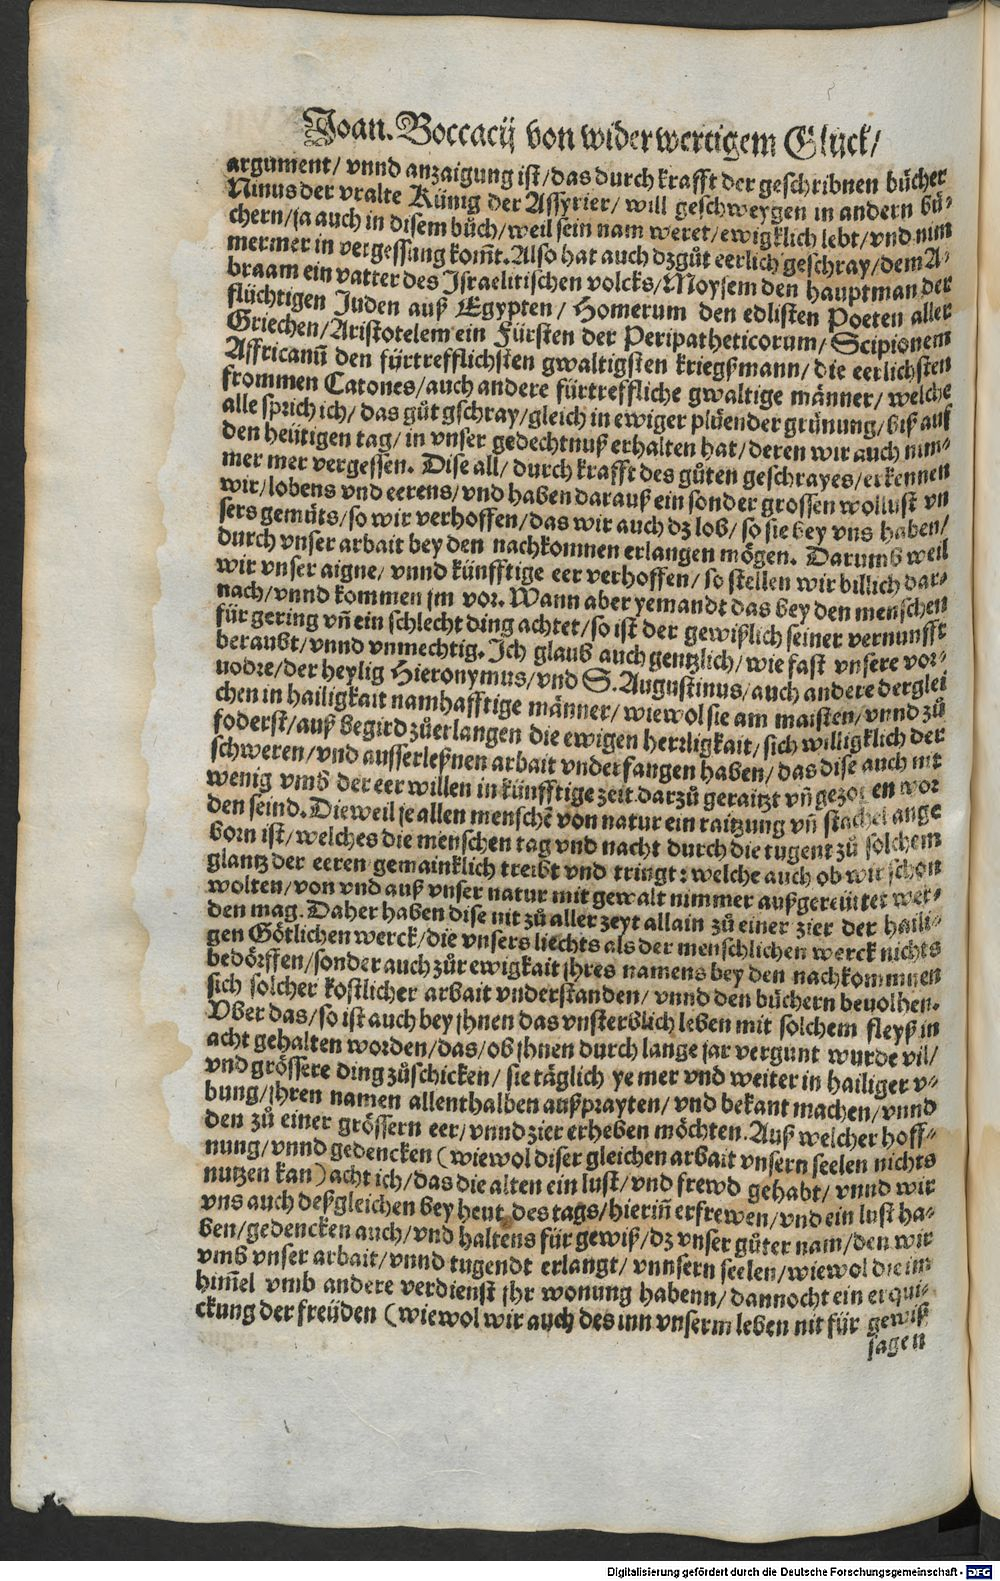 Joan. Boccacij von widerwertigem Glück/
argument/ vnnd anzaigung ist/ das durch krafft der geschribnen bücher
Ninus der vralte Künig der Assyrier/ will geschweygen in andern bü-
chern/ ja auch in disem bůch/ weil sein nam weret/ ewigklich lebt/ vnd nim
mermer in vergessung kom̃t. Also hat auch dz gůt eerlich geschray/ dem A-
braam ein vatter des Israelitischen volcks/ Moysem den hauptman der
flüchtigen Juden auß Egypten/ Homerum den edlisten Poeten aller
Griechen/ Aristotelem ein Fürsten der Peripatheticorum/ Scipionem
Affricanũ den fürtrefflichsten gwaltigsten kriegßmann/ die eerlichsten
frommen Catones/ auch andere fürtreffliche gwaltige männer/ welche
alle sprich ich/ das gůt gschray/ gleich in ewiger plüender grünung/ biß auff
den heütigen tag/ in vnser gedechtnuß erhalten hat/ deren wir auch nim-
mer mer vergessen. Dise all/ durch krafft des gůten geschrayes/ erkennen
wir/ lobens vnd eerens/ vnd haben darauß ein sonder grossen wollust vn
sers gemüts/ so wir verhoffen/ das wir auch dz lob/ so sie bey vns haben/
durch vnser arbait bey den nachkomnen erlangen mögen. Darumb weil
wir vnser aigne/ vnnd künfftige eer verhoffen/ so stellen wir billich dar-
nach/ vnnd kommen jm vor. Wann aber yemandt das bey den menschen
für gering vñ ein schlecht ding achtet/ so ist der gewißlich seiner vernunfft
beraubt/ vnnd vnmechtig. Ich glaub auch gentzlich/ wie fast vnsere vor-
uodre/ der heylig Hieronymus/ vnd S. Augustinus/ auch andere derglei
chen in hailigkait namhafftige männer/ wiewol sie am maisten/ vnnd zů
foderst/ auß begird zůerlangen die ewigen herrligkait/ sich willigklich der
schweren/ vnd ausserleßnen arbait vnderfangen haben/ das dise auch nit
wenig vmb der eer willen in künfftige zeit darzů geraitzt vñ gezogen wor
den seind. Dieweil je allen menschẽ von natur ein raitzung vñ stachel ange
born ist/ welches die menschen tag vnd nacht durch die tugent zů solchem
glantz der eeren gemainklich treibt vnd tringt: welche auch ob wir schon
wolten/ von vnd auß vnser natur mit gewalt nimmer außgereüttet wer-
den mag. Daher haben dise nit zů aller zeyt allain zů einer zier der haili-
gen Götlichen werck/ die vnsers liechts als der menschlichen werck nichts
bedörffen/ sonder auch zůr ewigkait jhres namens bey den nachkommen
sich solcher kostlicher arbait vnderstanden/ vnnd den büchern beuolhen.
Vber das/ so ist auch bey jhnen das vnsterblich leben mit solchem fleyß in
acht gehalten worden/ das/ ob jhnen durch lange jar vergunt wurde vil/
vnd grössere ding zůschicken/ sie täglich ye mer vnd weiter in hailiger v-
bung/ jhren namen allenthalben außprayten/ vnd bekant machen/ vnnd
den zů einer grössern eer/ vnnd zier erheben möchten. Auß welcher hoff-
nung/ vnnd gedencken (wiewol diser gleichen arbait vnsern seelen nichts
nutzen kan) acht ich/ das die alten ein lust/ vnd frewd gehabt/ vnnd wir
vns auch deßgleichen bey heut des tags/ hierin̄ erfrewen/ vnd ein lust ha-
ben/ gedencken auch/ vnd haltens für gewiß/ dz vnser gůter nam/ den wir
vmb vnser arbait/ vnnd tugendt erlangt/ vnnsern seelen/ wiewol die im
him̃el vmb andere verdienst jhr wonung habenn/ dannocht ein erqui-
ckung der freüden (wiewol wir auch des inn vnserm leben nit für gewiß
sagen
Digitalisierung gefördert durch die Deutsche Forschungsgemeinschaft - DFG